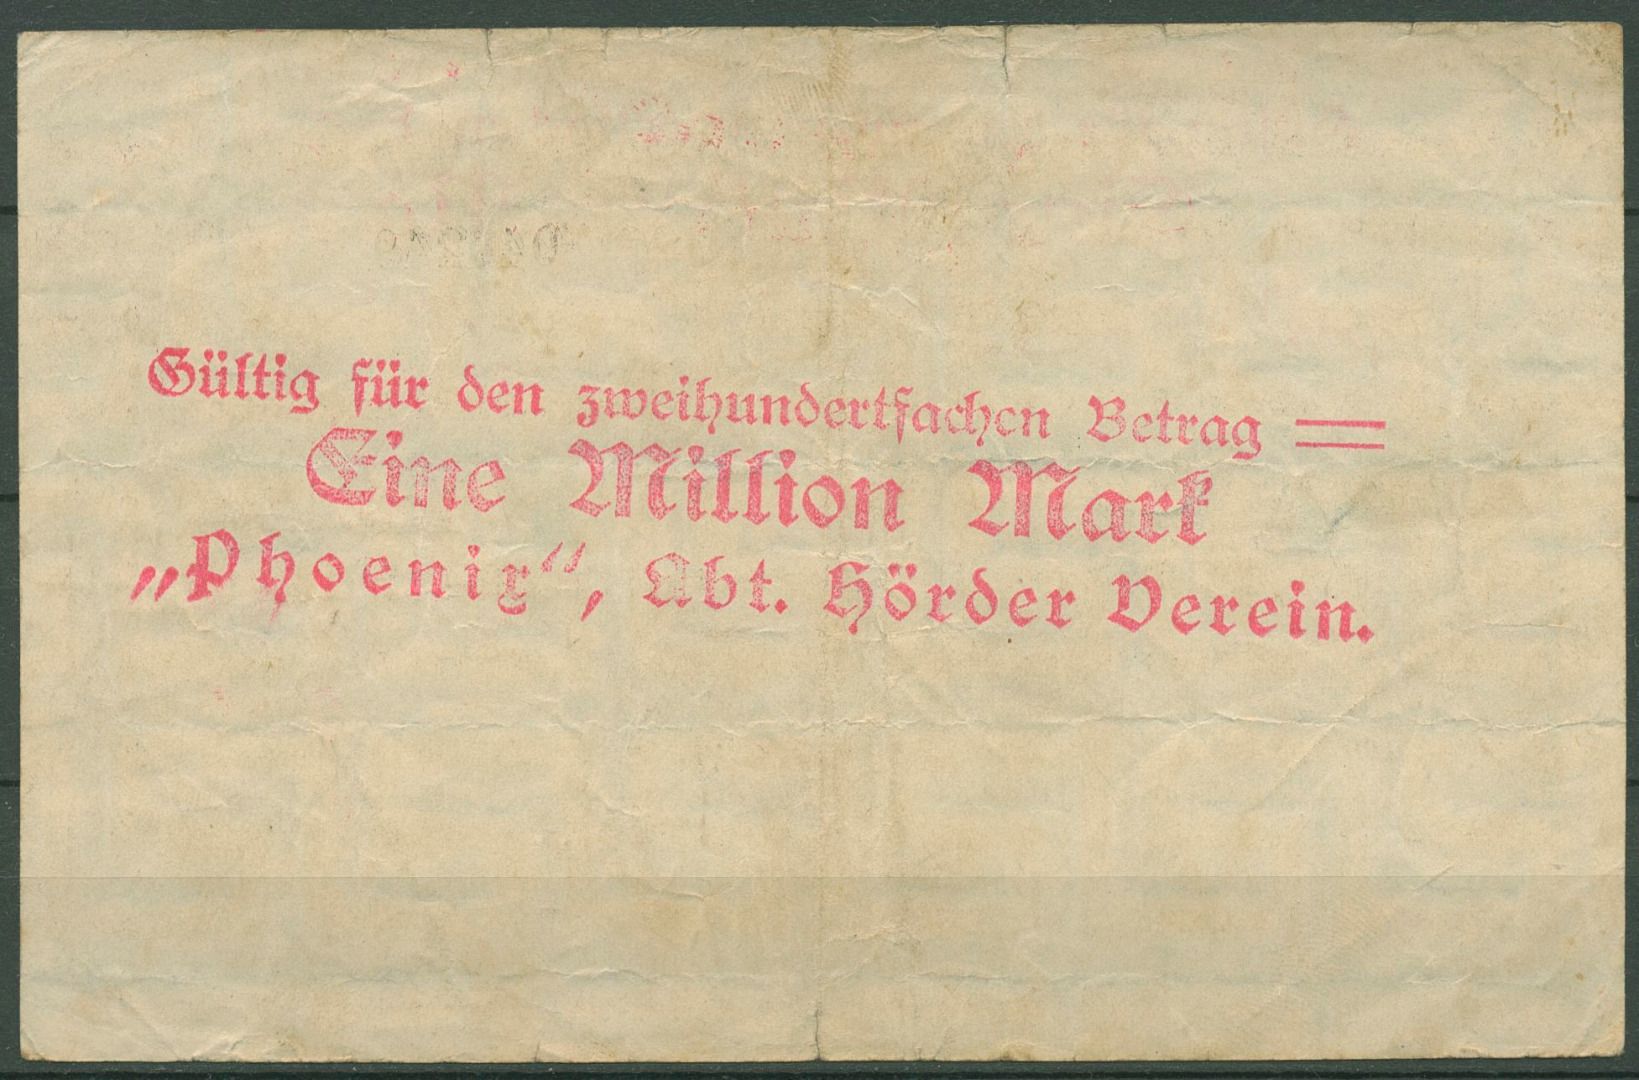 Gültig für den zweihundertfachen Betrag =
Eine Million Mark
„Phoenix“, Abt. Hörder Verein.